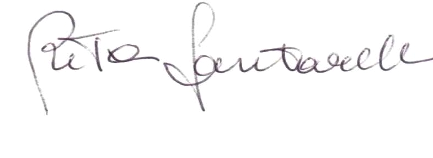 Rita Santarelli